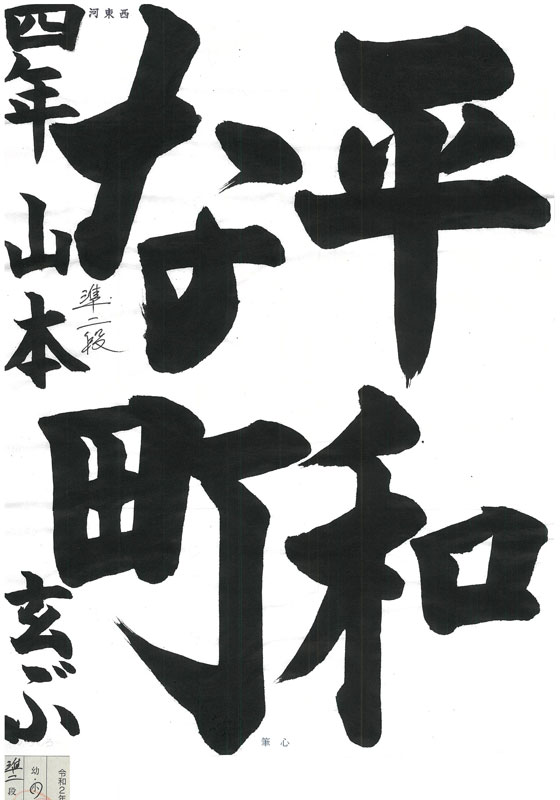 平和
な町
四年 山本 玄ぶ
準二段
河東西
心筆
令和2年
幼・小
準二段